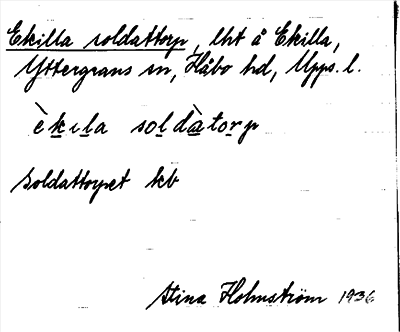 Ekilla soldattorp, lht å Ekilla,
Yttergrans sn, Håbo hd, Upps. l.
èkıla soldàtorp
soldattorpet kb
Stina Holmström 1936